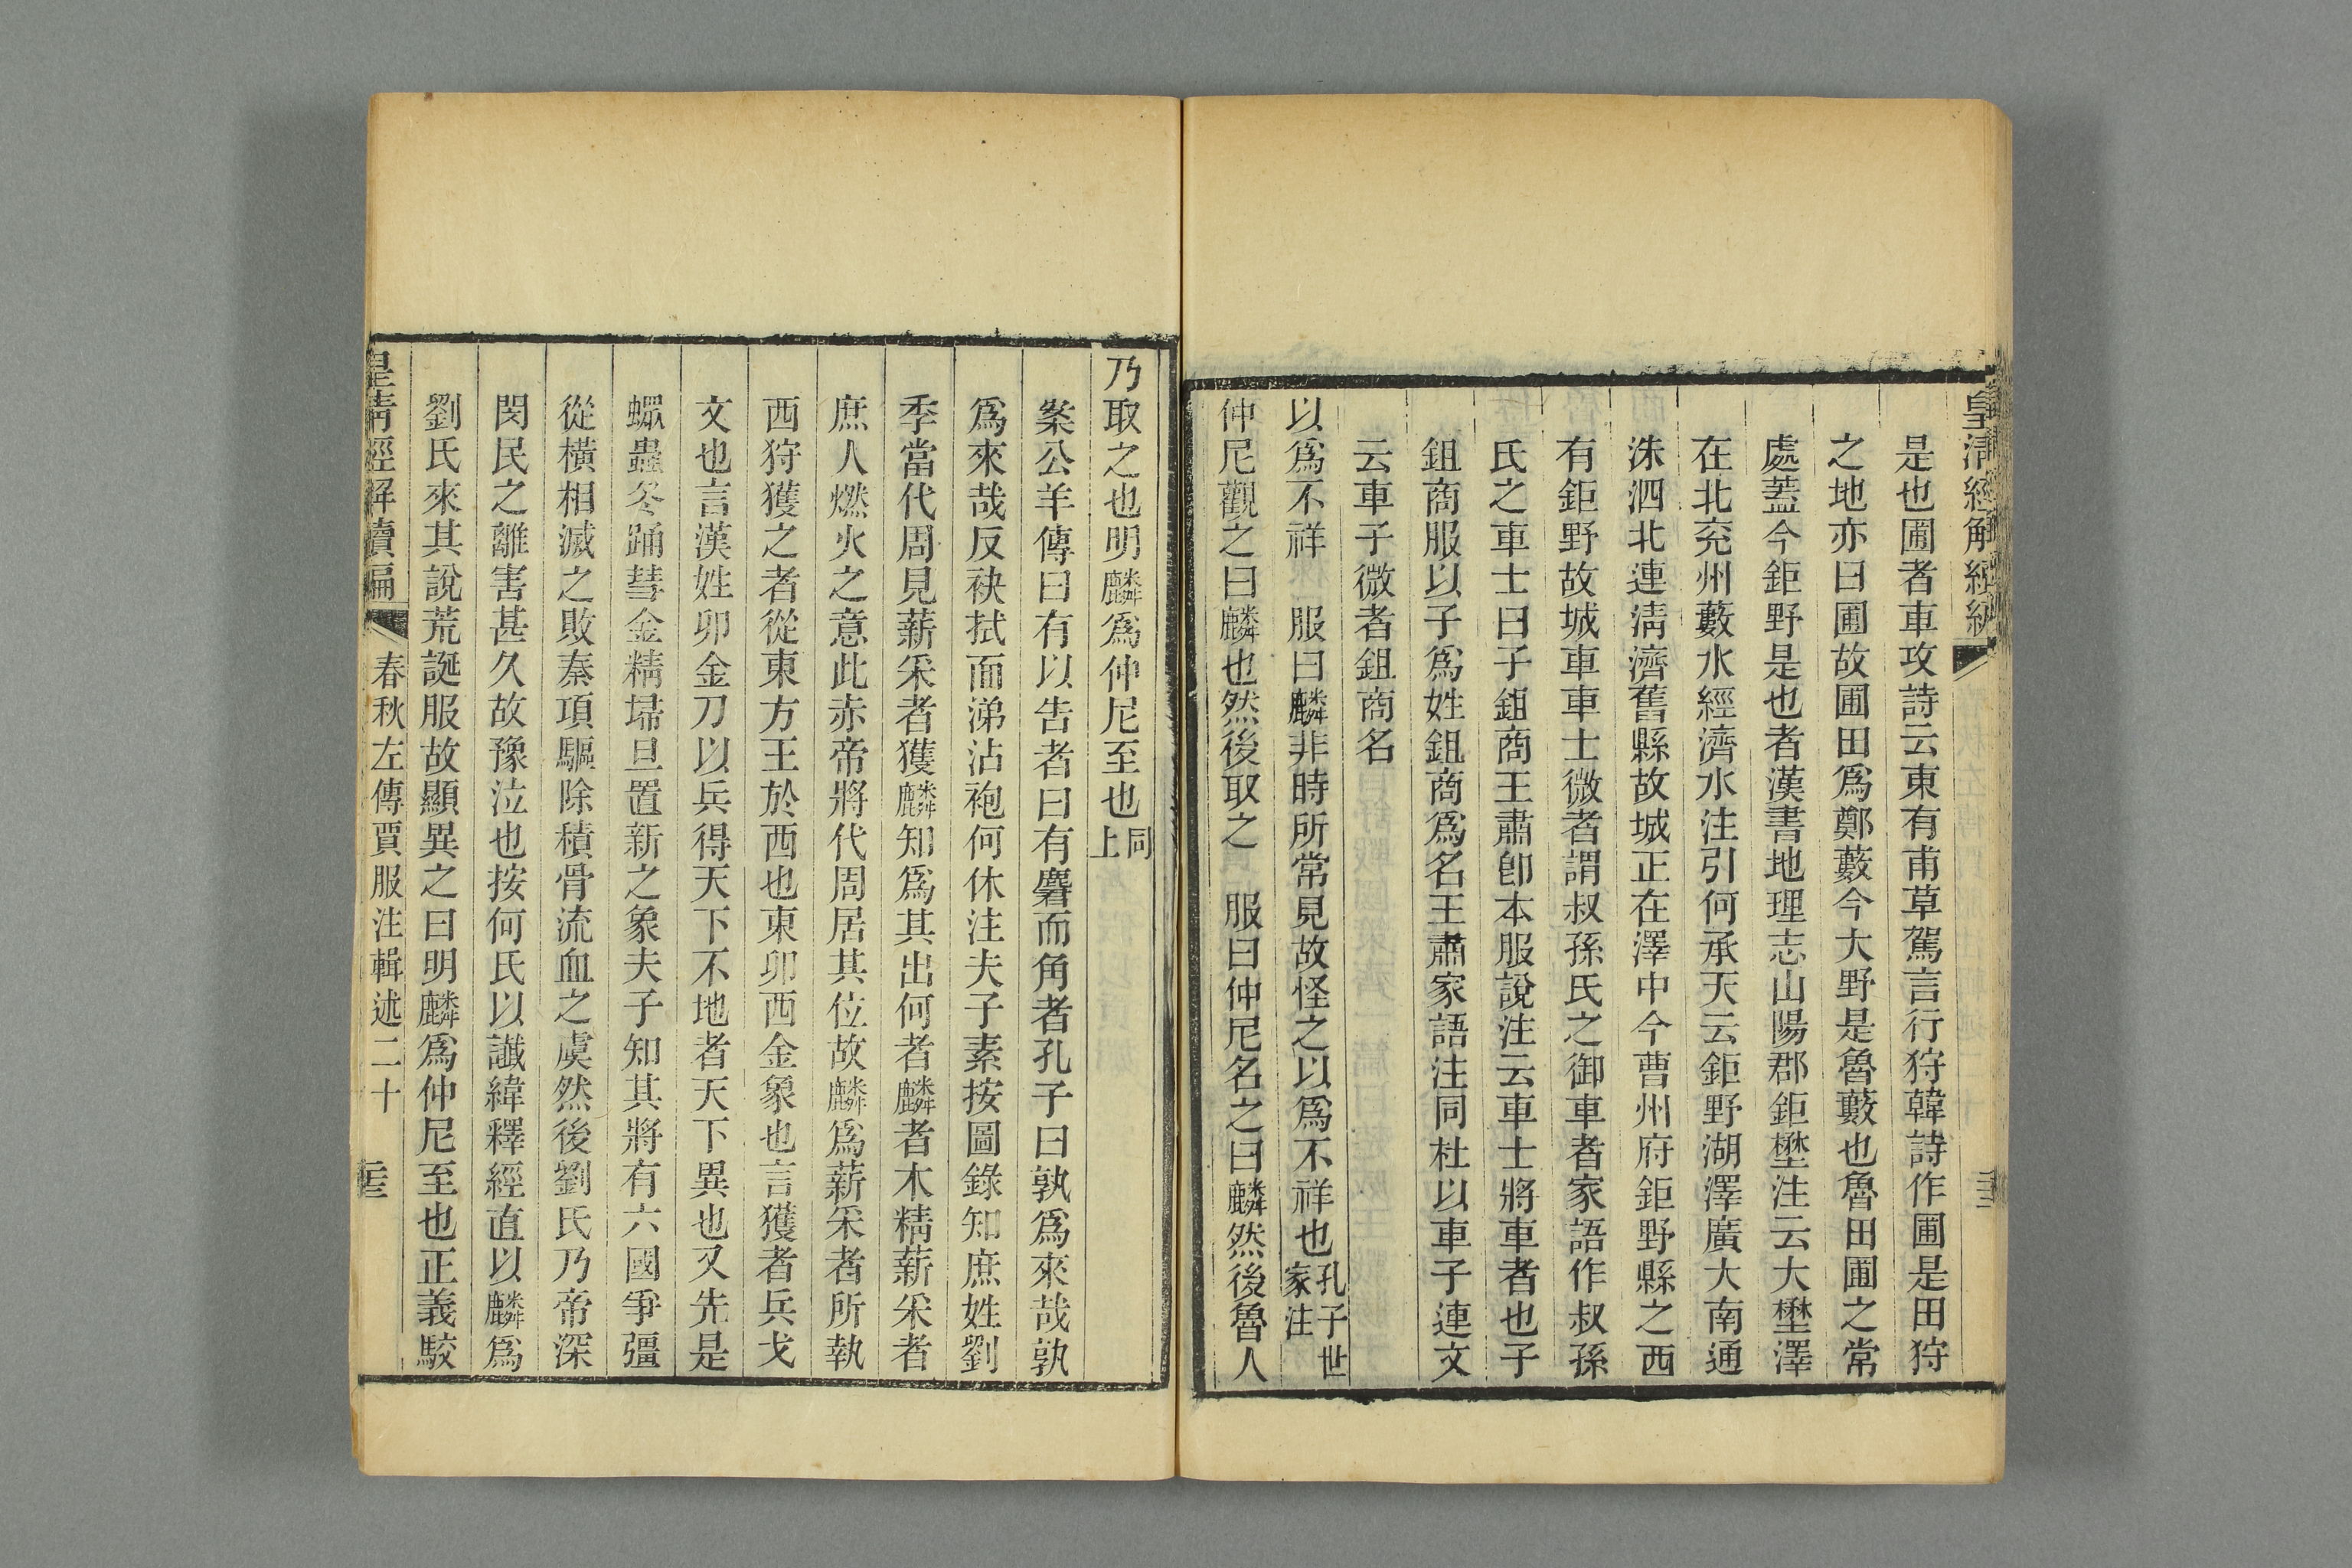 皇清經解續編
是也圃者車攻詩云東有甫草駕言行狩韓詩作圃是田狩
之地亦曰圃故圃田爲鄭藪今大野是魯藪也魯田圃之常
處蓋今鉅野是也者漢書地理志山陽郡鉅壄注云大壄澤
在北兗州藪水經濟水注引何承天云鉅野湖澤廣大南通
洙泗北連淸濟舊縣故城正在澤中今曹州府鉅野縣之西
有鉅野故城車車士微者謂叔孫氏之御車者家語作叔孫
氏之車士曰子鉏商王肅卽本服說注云車士將車者也子
鉏商服以子爲姓鉏商爲名王肅家語注同杜以車子連文
云車子微者鉏商名
以爲不祥 服曰麟非時所常見故怪之以爲不祥也孔子世家注
仲尼觀之曰麟也然後取之 服曰仲尼名之曰麟然後魯人
乃取之也明麟爲仲尼至也同上
案公羊傳曰有以告者曰有麏而角者孔子曰孰爲來哉孰
爲來哉反袂拭面涕沾袍何休注夫子素按圖錄知庶姓劉
季當代周見薪采者獲麟知爲其出何者麟者木精薪采者
庶人燃火之意此赤帝將代周居其位故麟爲薪采者所執
西狩獲之者從東方王於西也東卯西金象也言獲者兵戈
文也言漢姓卯金刀以兵得天下不地者天下異也又先是
螺蟲冬踊彗金精埽旦置新之象夫子知其將有六國爭彊
從橫相滅之敗秦項驅除積骨流血之虞然後劉氏乃帝深
閔民之離害甚久故豫泣也按何氏以讖緯釋經直以麟爲
劉氏來其說荒誕服故顯異之曰明麟爲仲尼至也正義駮
皇清經解續編 春秋左傳賈服注輯述二十